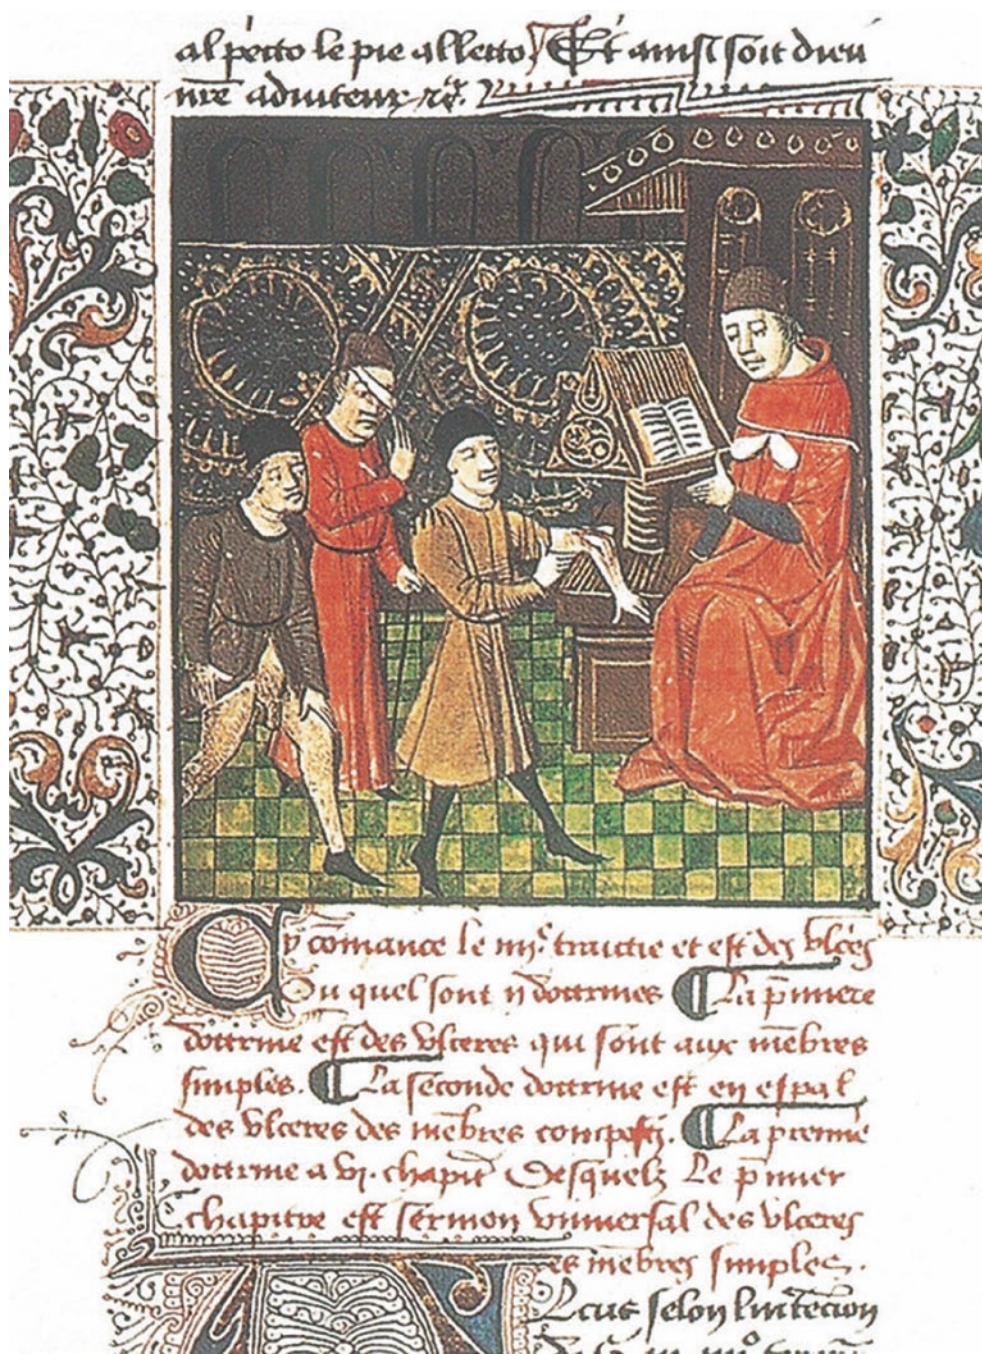 al petto le pie al letto Et ainsi soit dieu
nre aditeur
Cy comance le iiije traictie et est des vlces
Du quel sont ii doctrines La pmiere
doctrine est des vlceres qui sont aux mebres
simples. La seconde doctrine est en espal
des vlceres des mebres compost. La premie
doctrine a vj. chapit Desquelz Le pmier
chapitre est sermon vniuersal des vlceres
es mebres simples.
selon lintecion